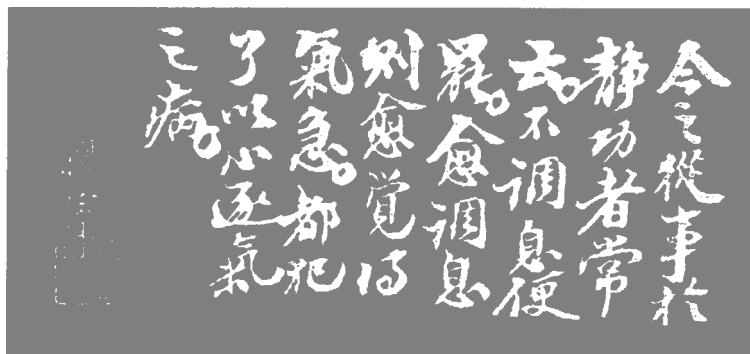 今之從事於
静功者常
云。不调息便
罷。愈调息
则愈覚得
氣急。都犯
了以心逐氣
之病。